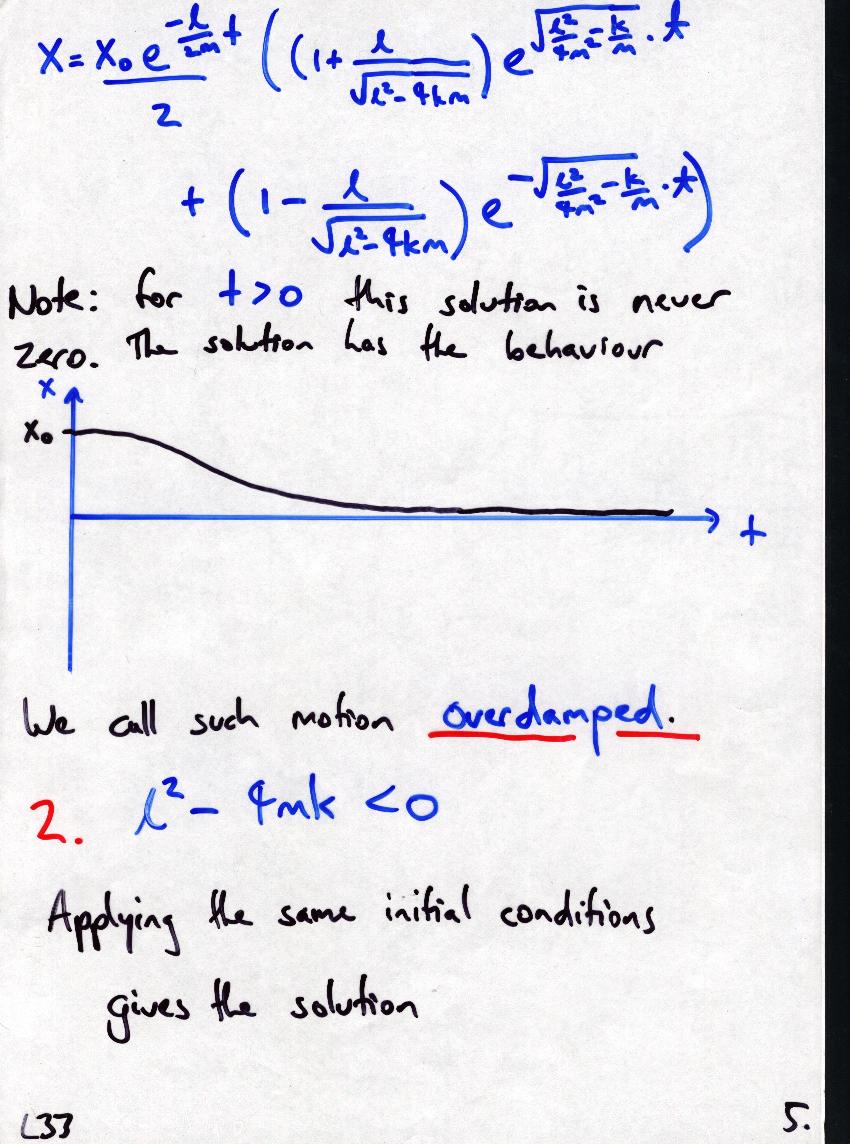 X = X₀ e^(-l/2m t) / 2 ( (1 + l/√(l² - 4km)) e^(√(l²/4m² - k/m) · t)
+ (1 - l/√(l² - 4km)) e^(-√(l²/4m² - k/m) · t) )
Note: for t > 0 this solution is never
zero. The solution has the behaviour
x
X₀
t
We call such motion overdamped.
2. l² - 4mk < 0
Applying the same initial conditions
gives the solution
L33
5.